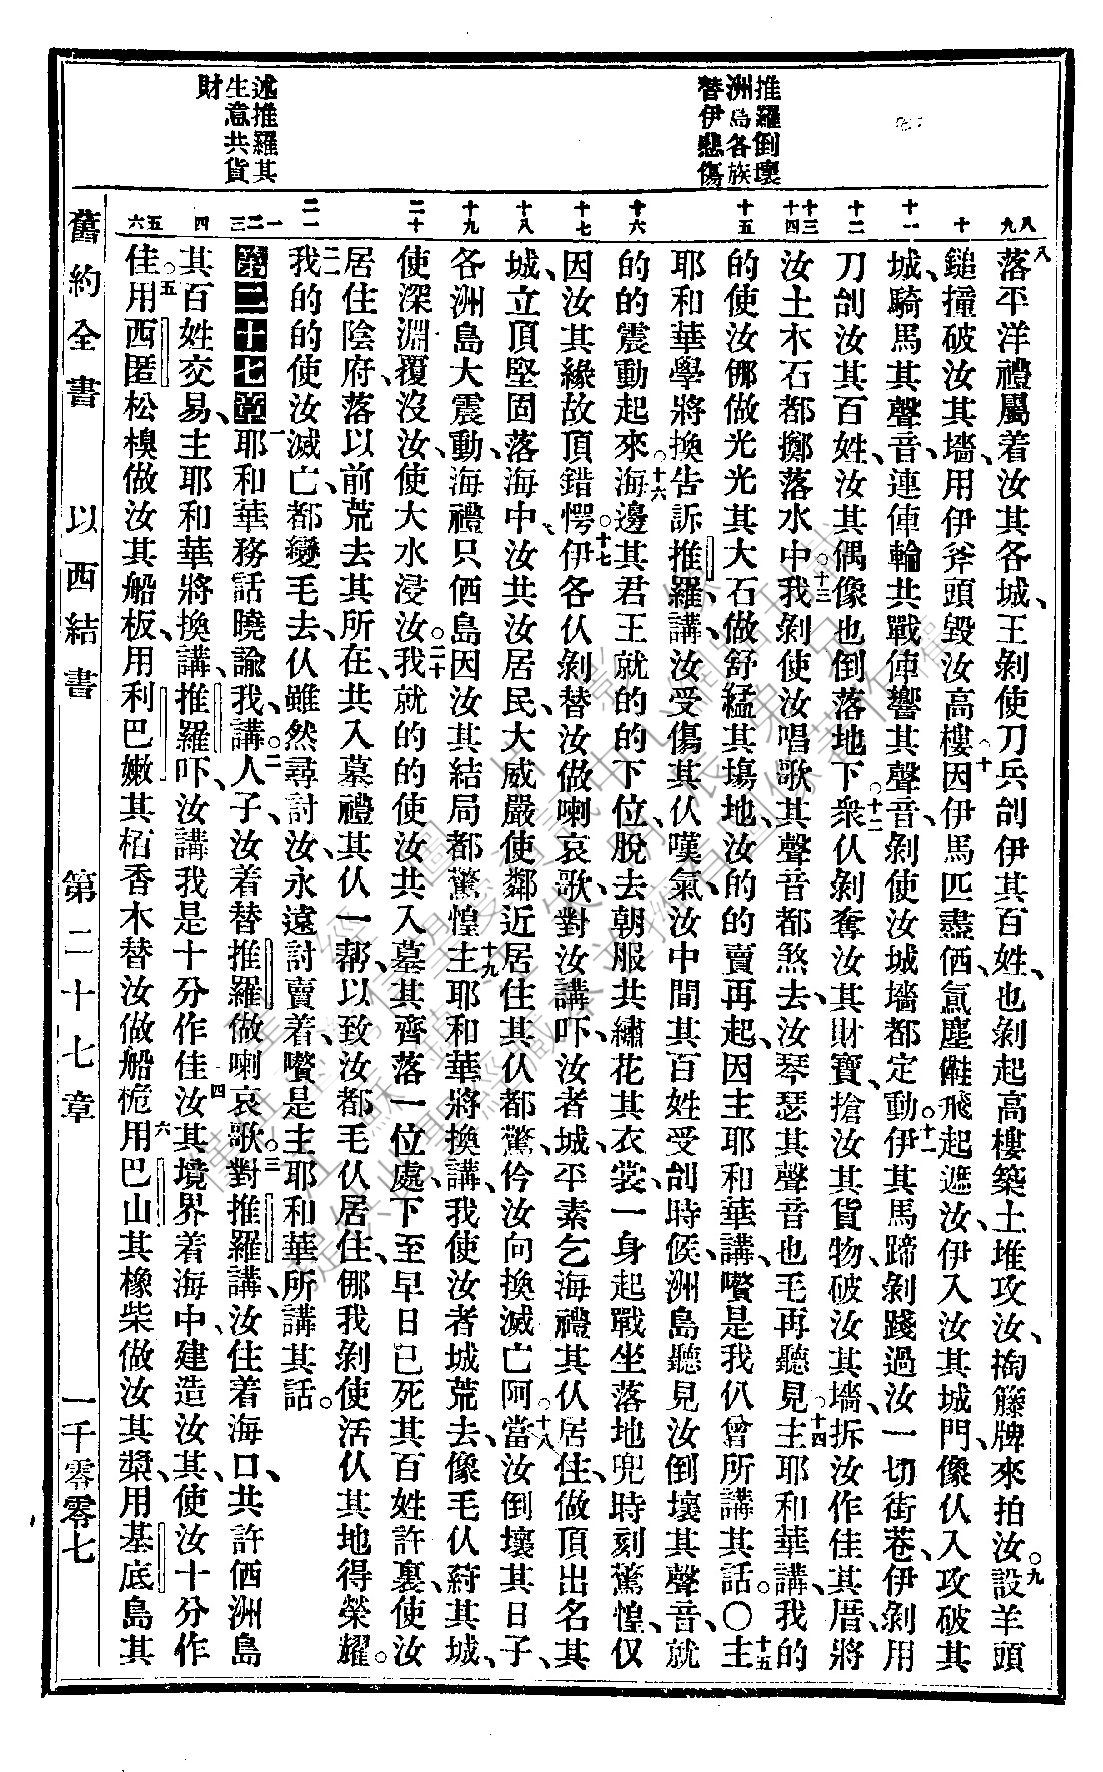 推羅倒壞
洲島各族
替伊悲傷
述推羅其
生意共貨
財
八 九 十 十一 十二 十三 十四 十五 十六 十七 十八 十九 二十 二一 一 二 三 四 五 六
八落平洋禮屬着汝其各城、王剝使刀兵刣伊其百姓、也剝起高樓築土堆攻汝、搊籐牌來拍汝。九設羊頭
鎚撞破汝其墻、用伊斧頭毀汝高樓。十因伊馬匹盡価、氤塵𨿅飛起遮汝、伊入汝其城門、像仈入攻破其
城、騎馬其聲音、連俥輪共戰俥響其聲音、剝使汝城墻都定動。十一伊其馬蹄剝踐過汝一切街巷、伊剝用
刀刣汝其百姓、汝其偶像也倒落地下。十二衆仈剝奪汝其財寶、搶汝其貨物、破汝其墻、拆汝作佳其厝、將
汝土木石都擲落水中。十三我剝使汝唱歌其聲音都煞去、汝琴瑟其聲音也毛再聽見。十四主耶和華講、我的
的使汝𠆧做光光其大石、做舒綕其塲地、汝的的賣再起、因主耶和華講、嚽是我仈曾所講其話。〇十五主
耶和華學將換告訴推羅講、汝受傷其仈嘆氣、汝中間其百姓受刣時候、洲島聽見汝倒壞其聲音、就
的的震動起來。十六海邊其君王就的的下位、脫去朝服共繡花其衣裳、一身起戰坐落地、兜時刻驚惶、仅
因汝其緣故頂錯愕。十七伊各仈剝替汝做喇哀歌、對汝講吓、汝者城、平素乞海禮其仈居住、做頂出名其
城、立頂堅固落海中、汝共汝居民、大威嚴使鄰近居住其仈都驚、仱汝向換滅亡阿。十八當汝倒壞其日子、
各洲島大震動、海禮只価島因汝其結局都驚惶。十九主耶和華將換講、我使汝者城荒去、像毛仈𦀚其城、
使深淵覆沒汝、使大水浸汝。二十我就的的使汝共入墓其齊落一位處、下至早日已死其百姓許裏、使汝
居住陰府、落以前荒去其所在、共入墓禮其仈一幫、以致汝都毛仈居住、𠆧我剝使活仈其地得榮耀。
二一我的的使汝滅亡、都變毛去、仈雖然尋討汝、永遠討賣着、嚽是主耶和華所講其話。
第二十七章 一耶和華務話曉諭我講。二人子、汝着替推羅做喇哀歌。三對推羅講、汝住着海口、共許価洲島
其百姓交易、主耶和華將換講、推羅吓、汝講我是十分作佳。四汝其境界着海中、建造汝其、使汝十分作
佳。五用西匿松模做汝其船板、用利巴嫩其栢香木替汝做船桅。六用巴山其橡柴做汝其槳、用基底島其
舊約全書 以西結書 第二十七章 一千零零七